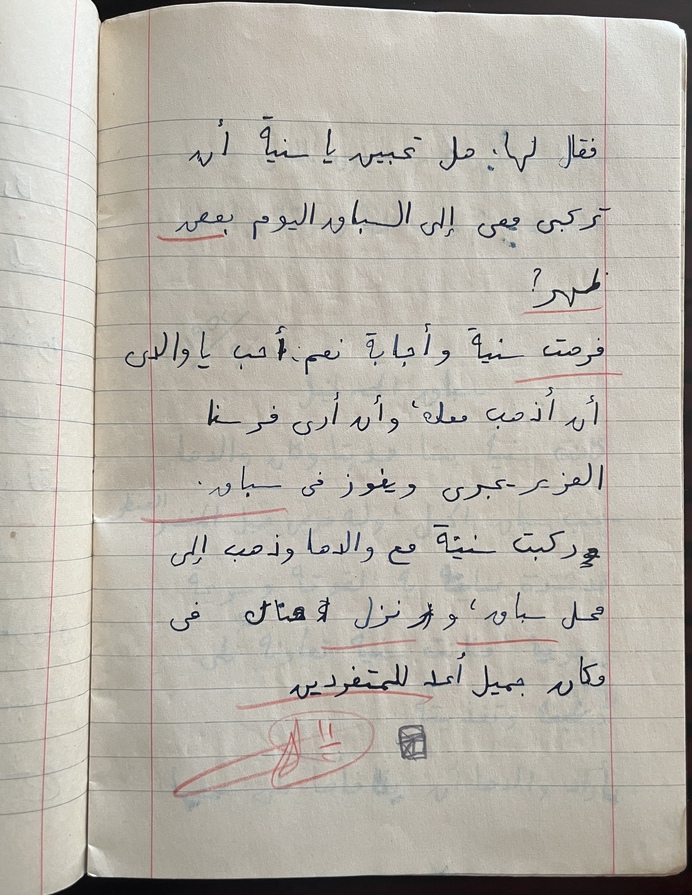 فقال لها: هل تحبين يا سنية أن
تركبى معى إلى السباق اليوم بعض
ظهر؟
فرحت سنية وأجابة نعم: أحب يا والدى
أن أذهب معك، وأن أرى فرسنا
العزيز يجرى ويفوز فى سباق.
وركبت سنية مع والدها وذهب إلى
محل سباق، و نزل هناك فى
وكان جميل أعد للمتفودين